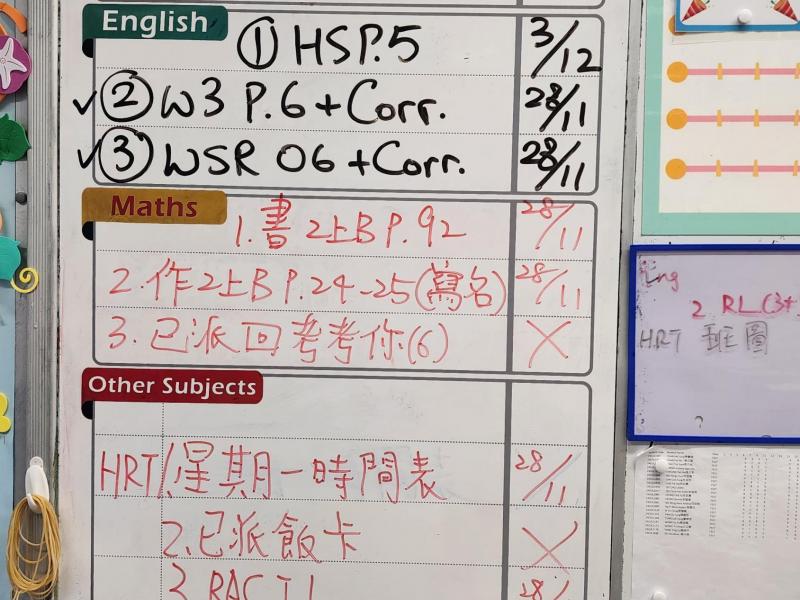 English
① HSP.5 3/12
✓ ② W3 P.6 + Corr. 28/11
✓ ③ WSR 06 + Corr. 28/11
Maths
1. 書 2上B P.92 28/11
2. 作 2上B P.24-25(寫名) 28/11
3. 已派回考考你(6) ×
Other Subjects
HRT 1. 星期一時間表 28/11
2. 已派飯卡 ×
3. 28/
Eng
2 RL (3+
HRT